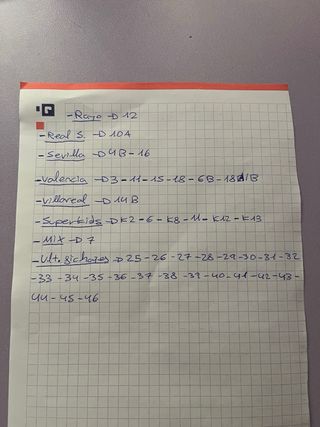 - Rayo → 12
- Real S. → 10A
- Sevilla → 4B - 16
- Valencia → 3 - 11 - 15 - 18 - 6B - 18 11B
- Villareal → 14B
- Superkids → K2 - 6 - K8 - 11 - K12 - K13
- Mix → 7
- Ult. fichajes → 25 - 26 - 27 - 28 - 29 - 30 - 31 - 32
- 33 - 34 - 35 - 36 - 37 - 38 - 39 - 40 - 41 - 42 - 43 -
44 - 45 - 46